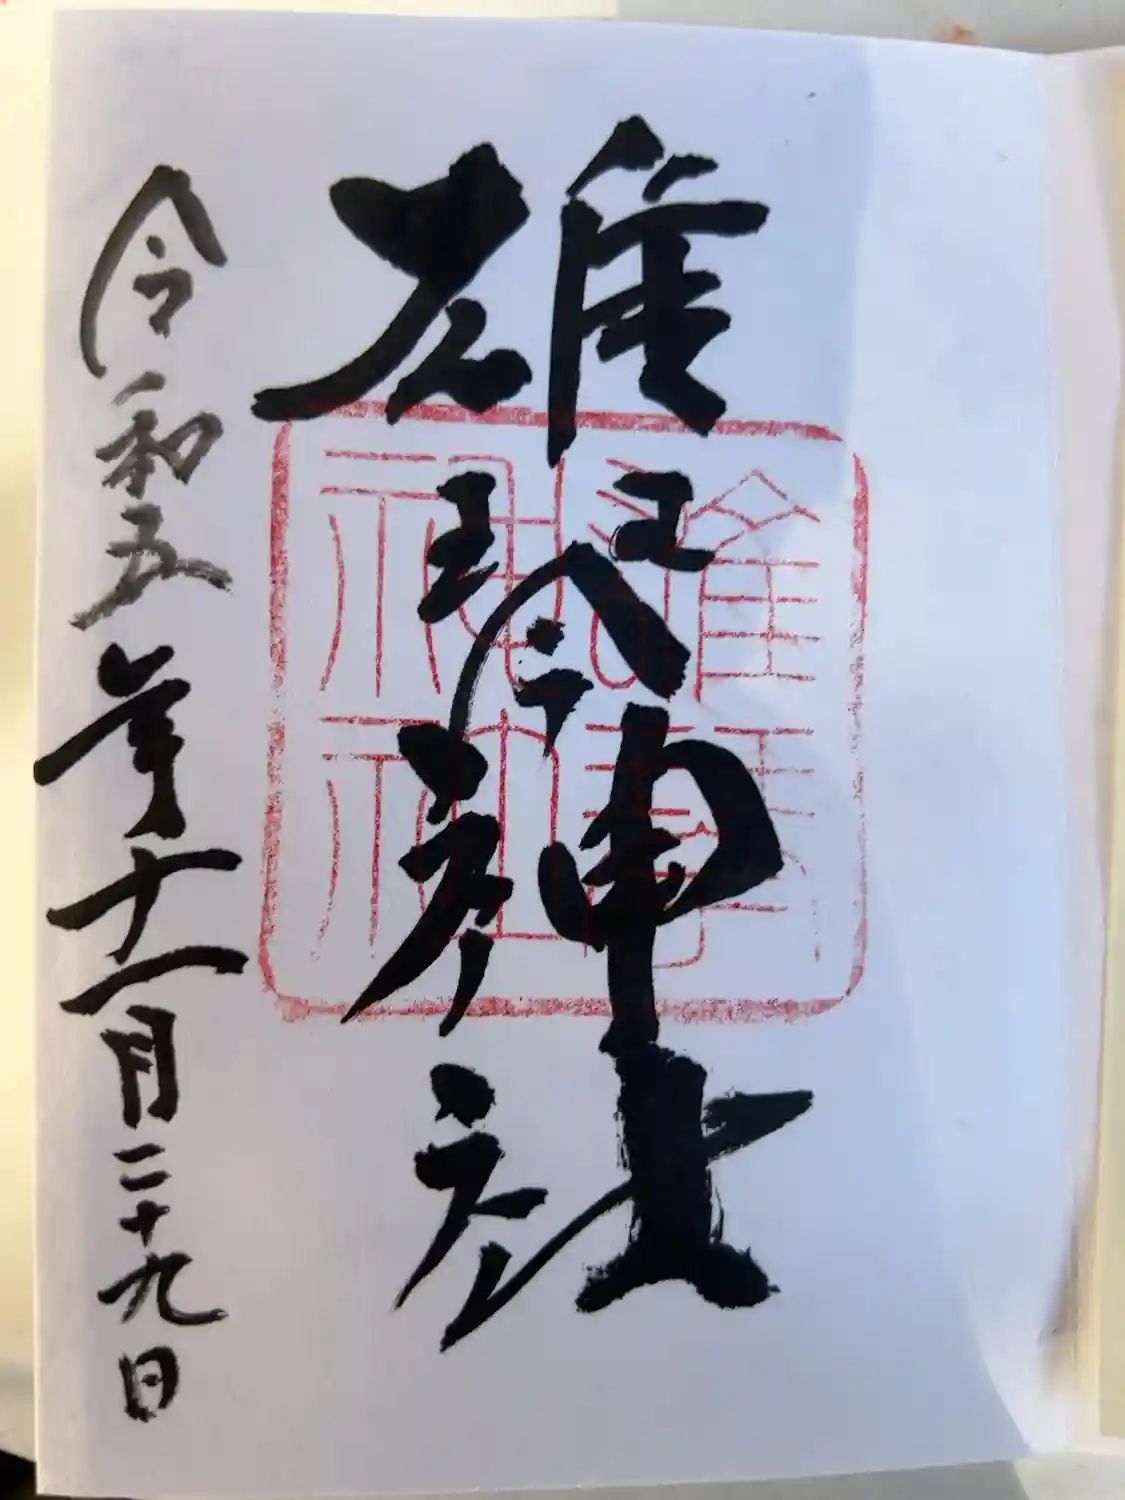 雄琴神社
令和五年十一月二十九日
雄琴神社